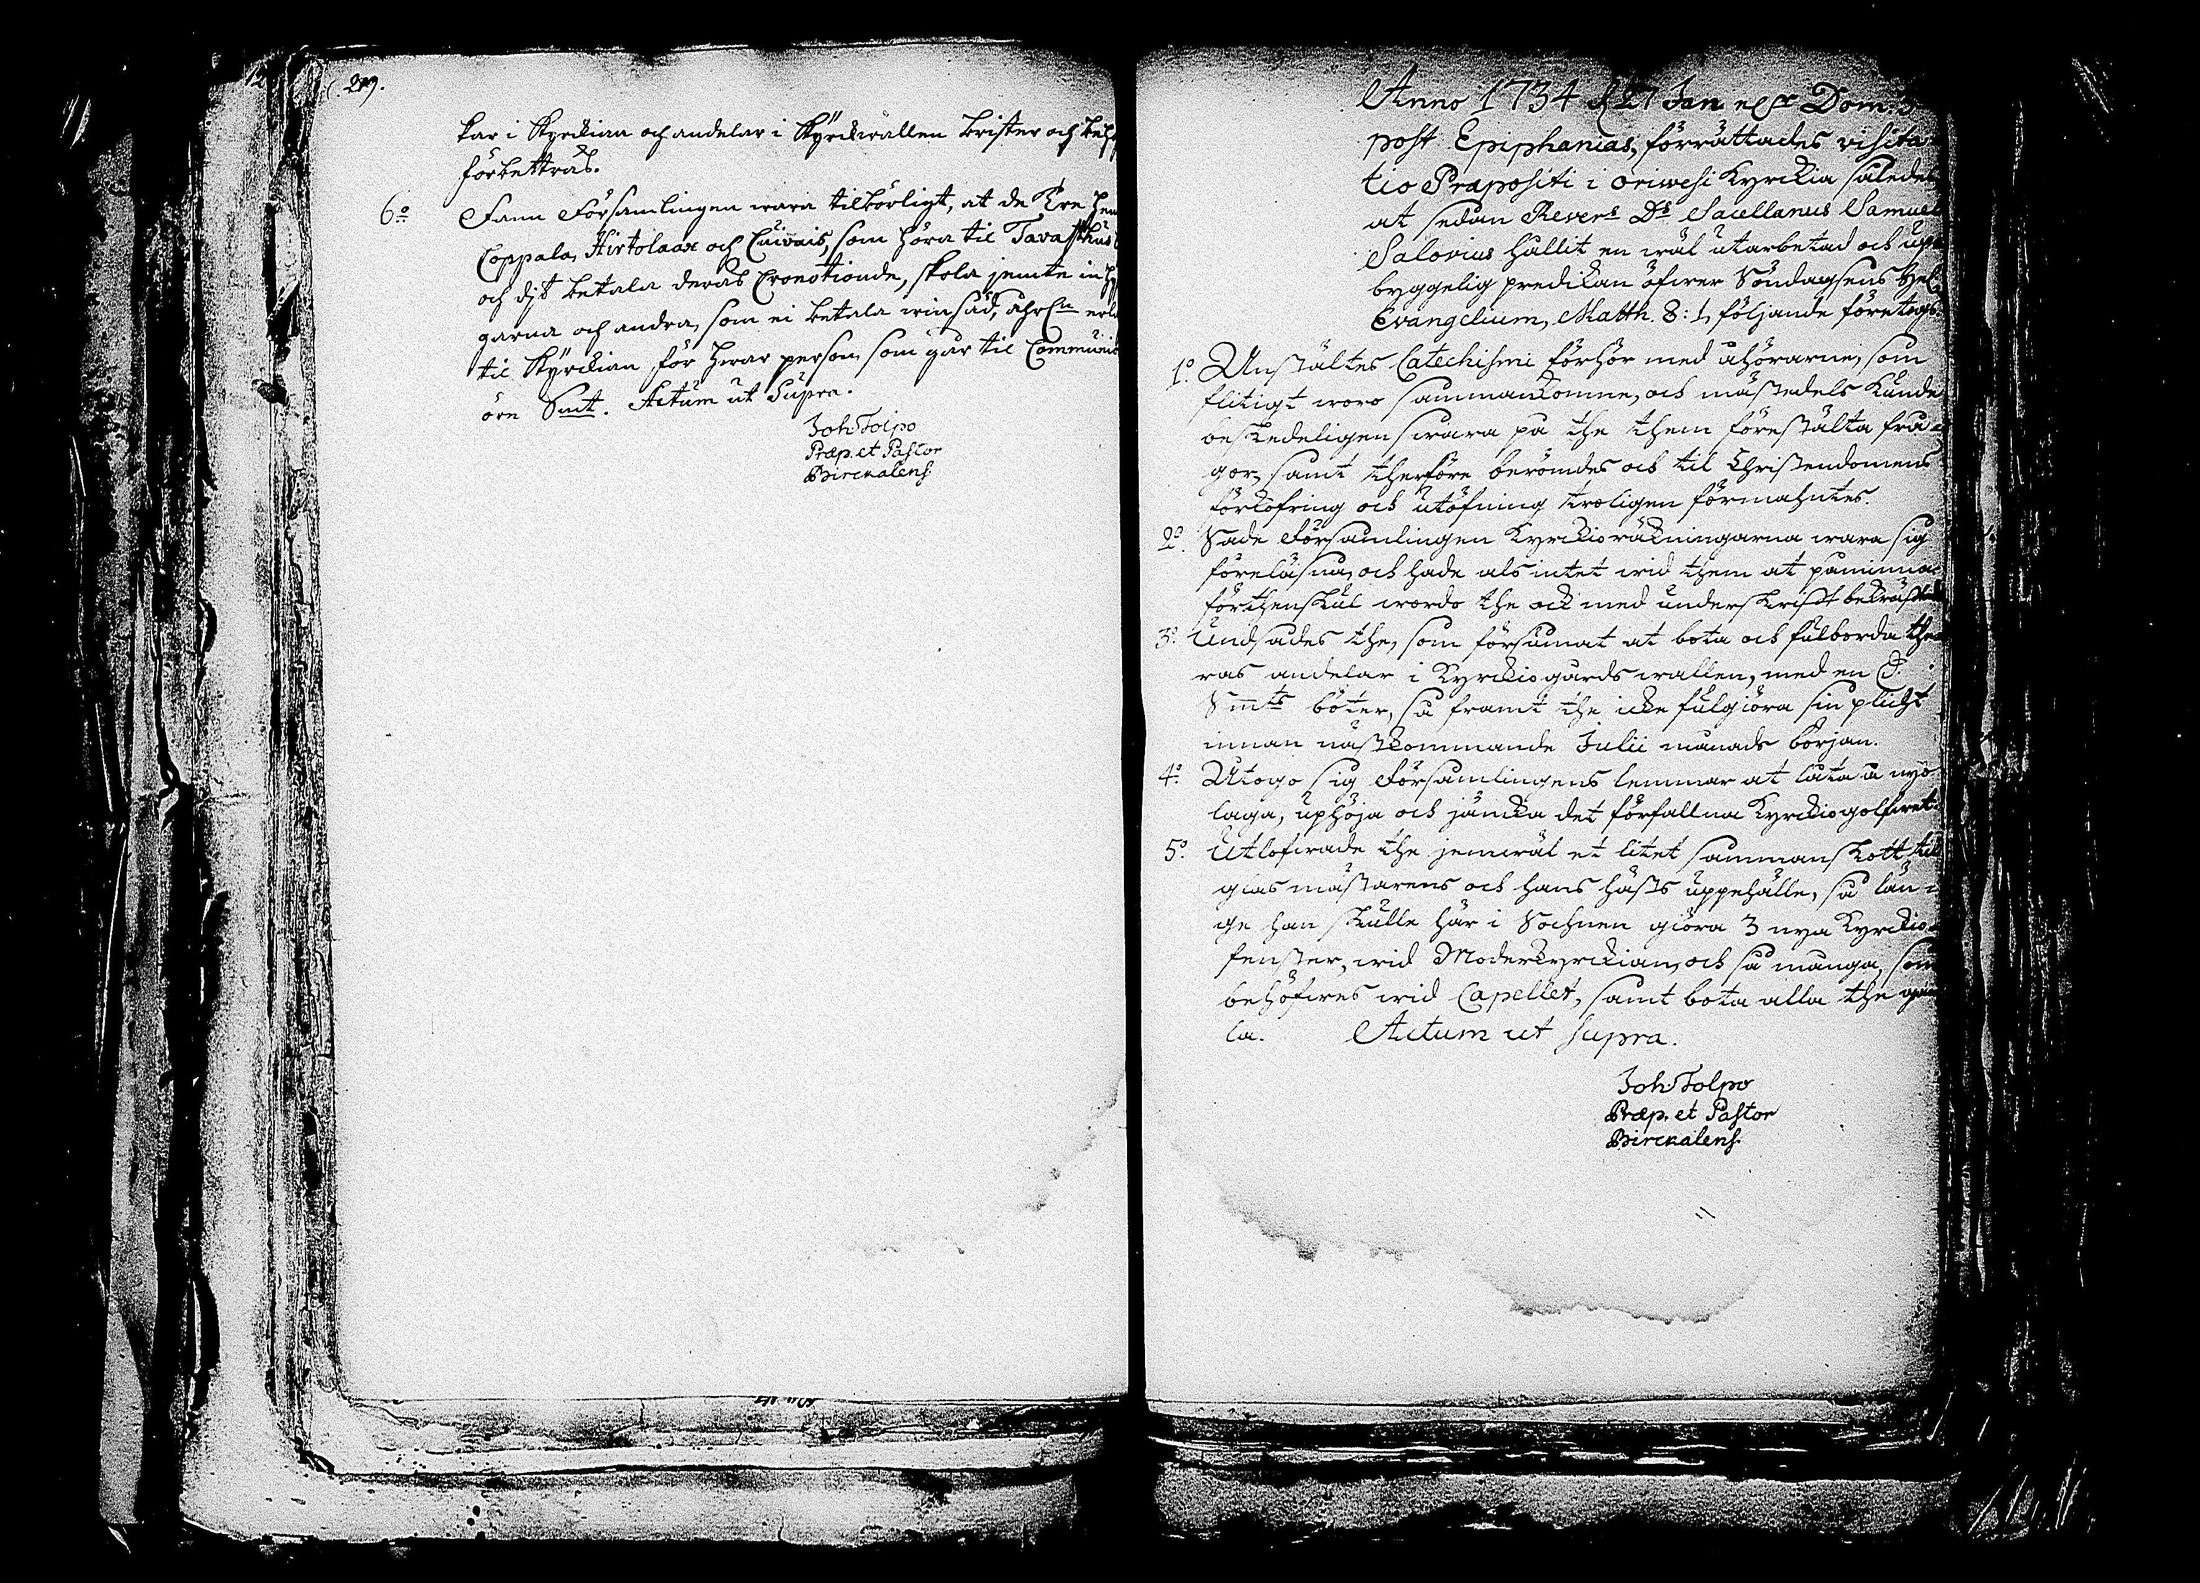 209.
kar i Kyrckian och andelar i Kyrckwallen brister och
förbettras.
6:o Fann Församlingen wara tilbörligt, at de tre
Coppala, Hirtolaax och Cuivais, som höra til Tavasthus
och dijt betala deras Cronotionde, skola jemte
garna och andra, som ei betala winsäd, åhrl:n
til Kyrckian för hwar person som går til Communion
öre Smt. Actum ut Supra.
Joh Tolpo
Præp. et Pastor
Birckalens.
Anno 1734 d 27 Jan Dom. 3
post Epiphanias, förrättades visita-
tio Præpositi i Oriwesi Kyrckia således
at sedan Rever:s D:s Sacellanus Samuel
Salovius hållit en wäl utarbetad och up-
byggelig predikan öfwer Söndagsens
Evangelium, Matth. 8:1, följande företogs.
1:o Anstältes Catechismi förhör med åhörarne, som
flitigt woro sammankomne, och mästedels kunde
beskedeligen swara på the them förestälta frå-
gor, samt therföre berömdes och til Christendomens
förkofring och utöfning troligen förmahntes.
2:o Sade Församlingen Kyrckioräkningarna wara sig
föreläsna, och hade als intet wid them at påminna
förthenskul wordo the ock med underskrift bekräftade
3:o Undsades the, som försumat at bota och fulborda the-
ras andelar i Kyrckiogårds wallen, med en
Smts böter, så framt the icke fulgiöra sin plicht
innan nästkommande Julii månads början.
4:o Åtogo sig Församlingens lemmar at låta å nyo
laga, uphöja och jämka det förfallna Kyrckiogolfwet.
5:o Utlofwade the jemwäl et litet sammanskott til
glasmästarens och hans hästs uppehälle, så län-
ge han skulle här i Sochnen giöra 3 nya Kyrckio-
fenster, wid Moderkyrckian, och så många, som
behöfwes wid Capellet, samt bota alla the gam
la. Actum ut supra.
Joh Tolpo
Præp. et Pastor
Birckalens.